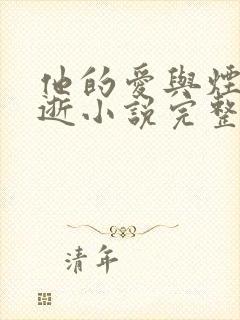 他的愛與煙
逝小說完整
清年